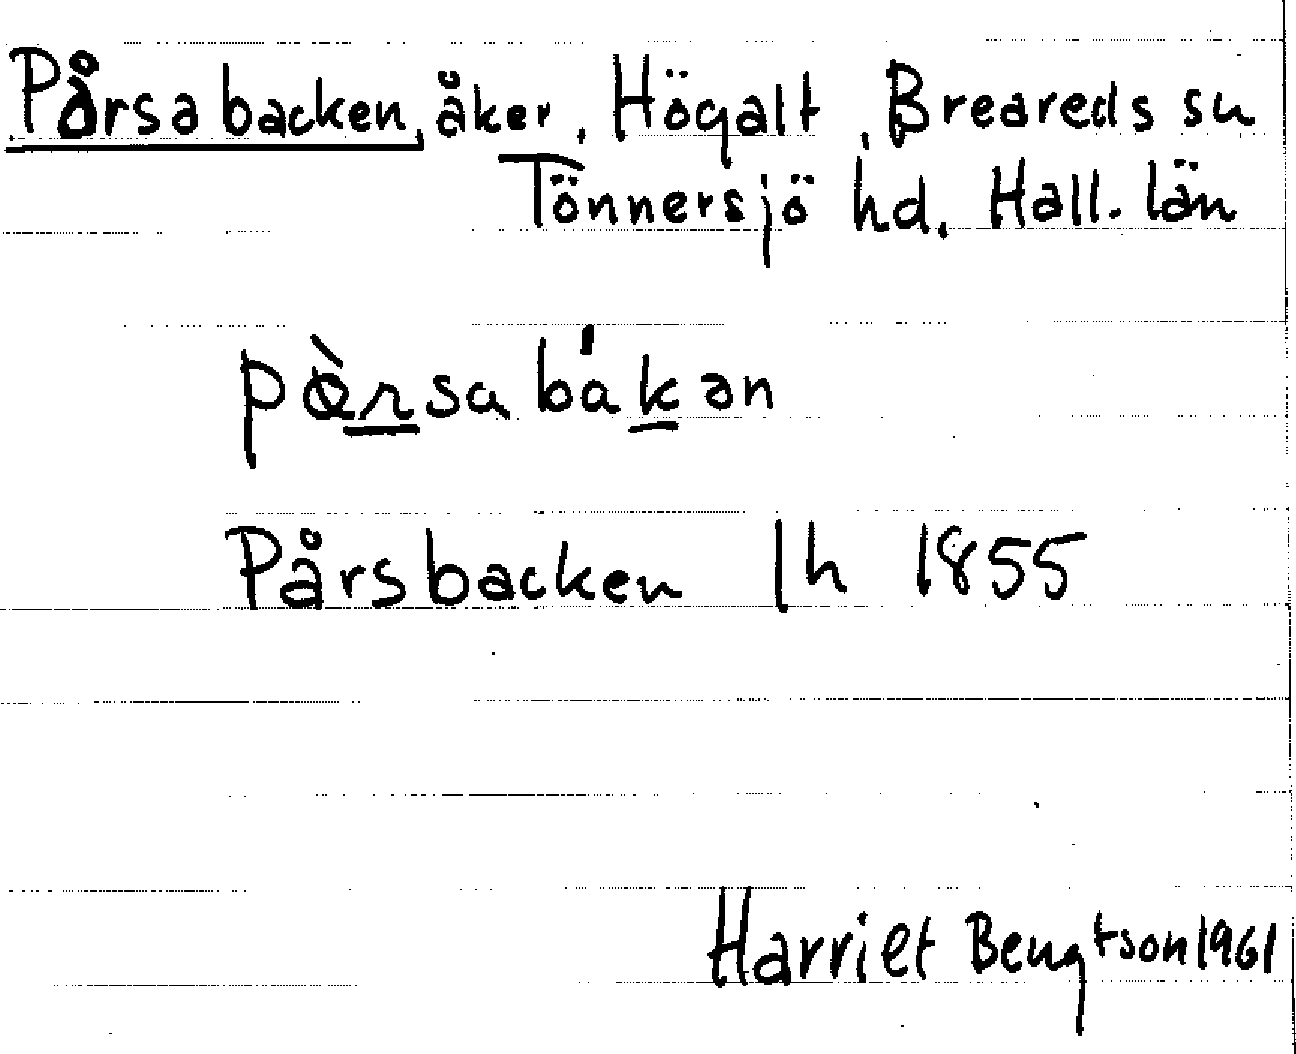 Pårsabacken, åker, Högalt, Breareds sn
Tönnersjö hd. Hall. län
pɵ̀rsabákən
Pårsbacken lh 1855
Harriet Bengtson 1961